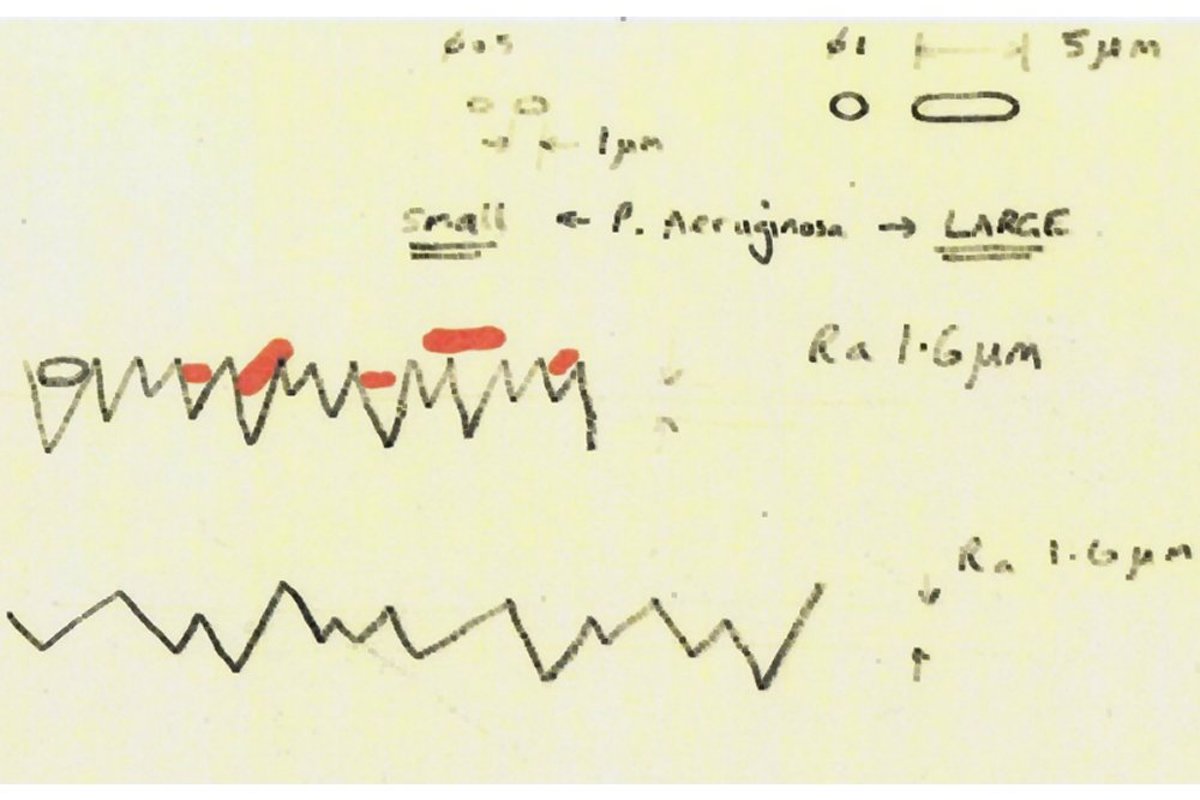 ø0.5 ø1 5µm
1µm
Small ← P. Aeruginosa → LARGE
Ra 1.6µm
Ra 1.6µm